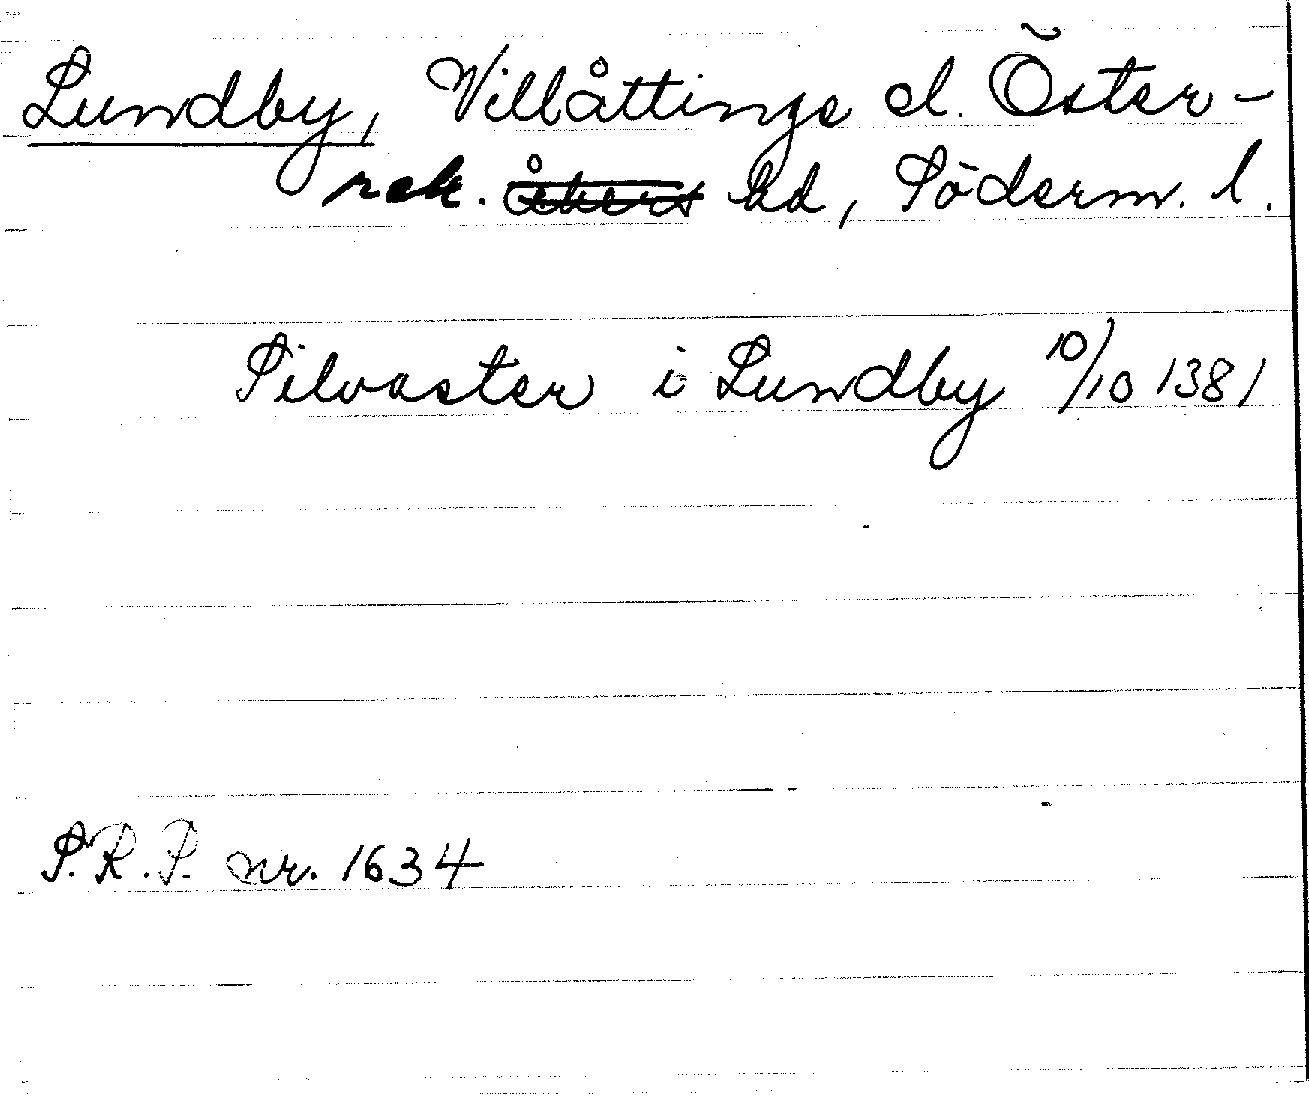 Lundby, Villåttinge el. Öster-
rek. åkers hd, Söderm. l.
Silvaster i Lundby 10/10 1381
S.R.P. nr. 1634